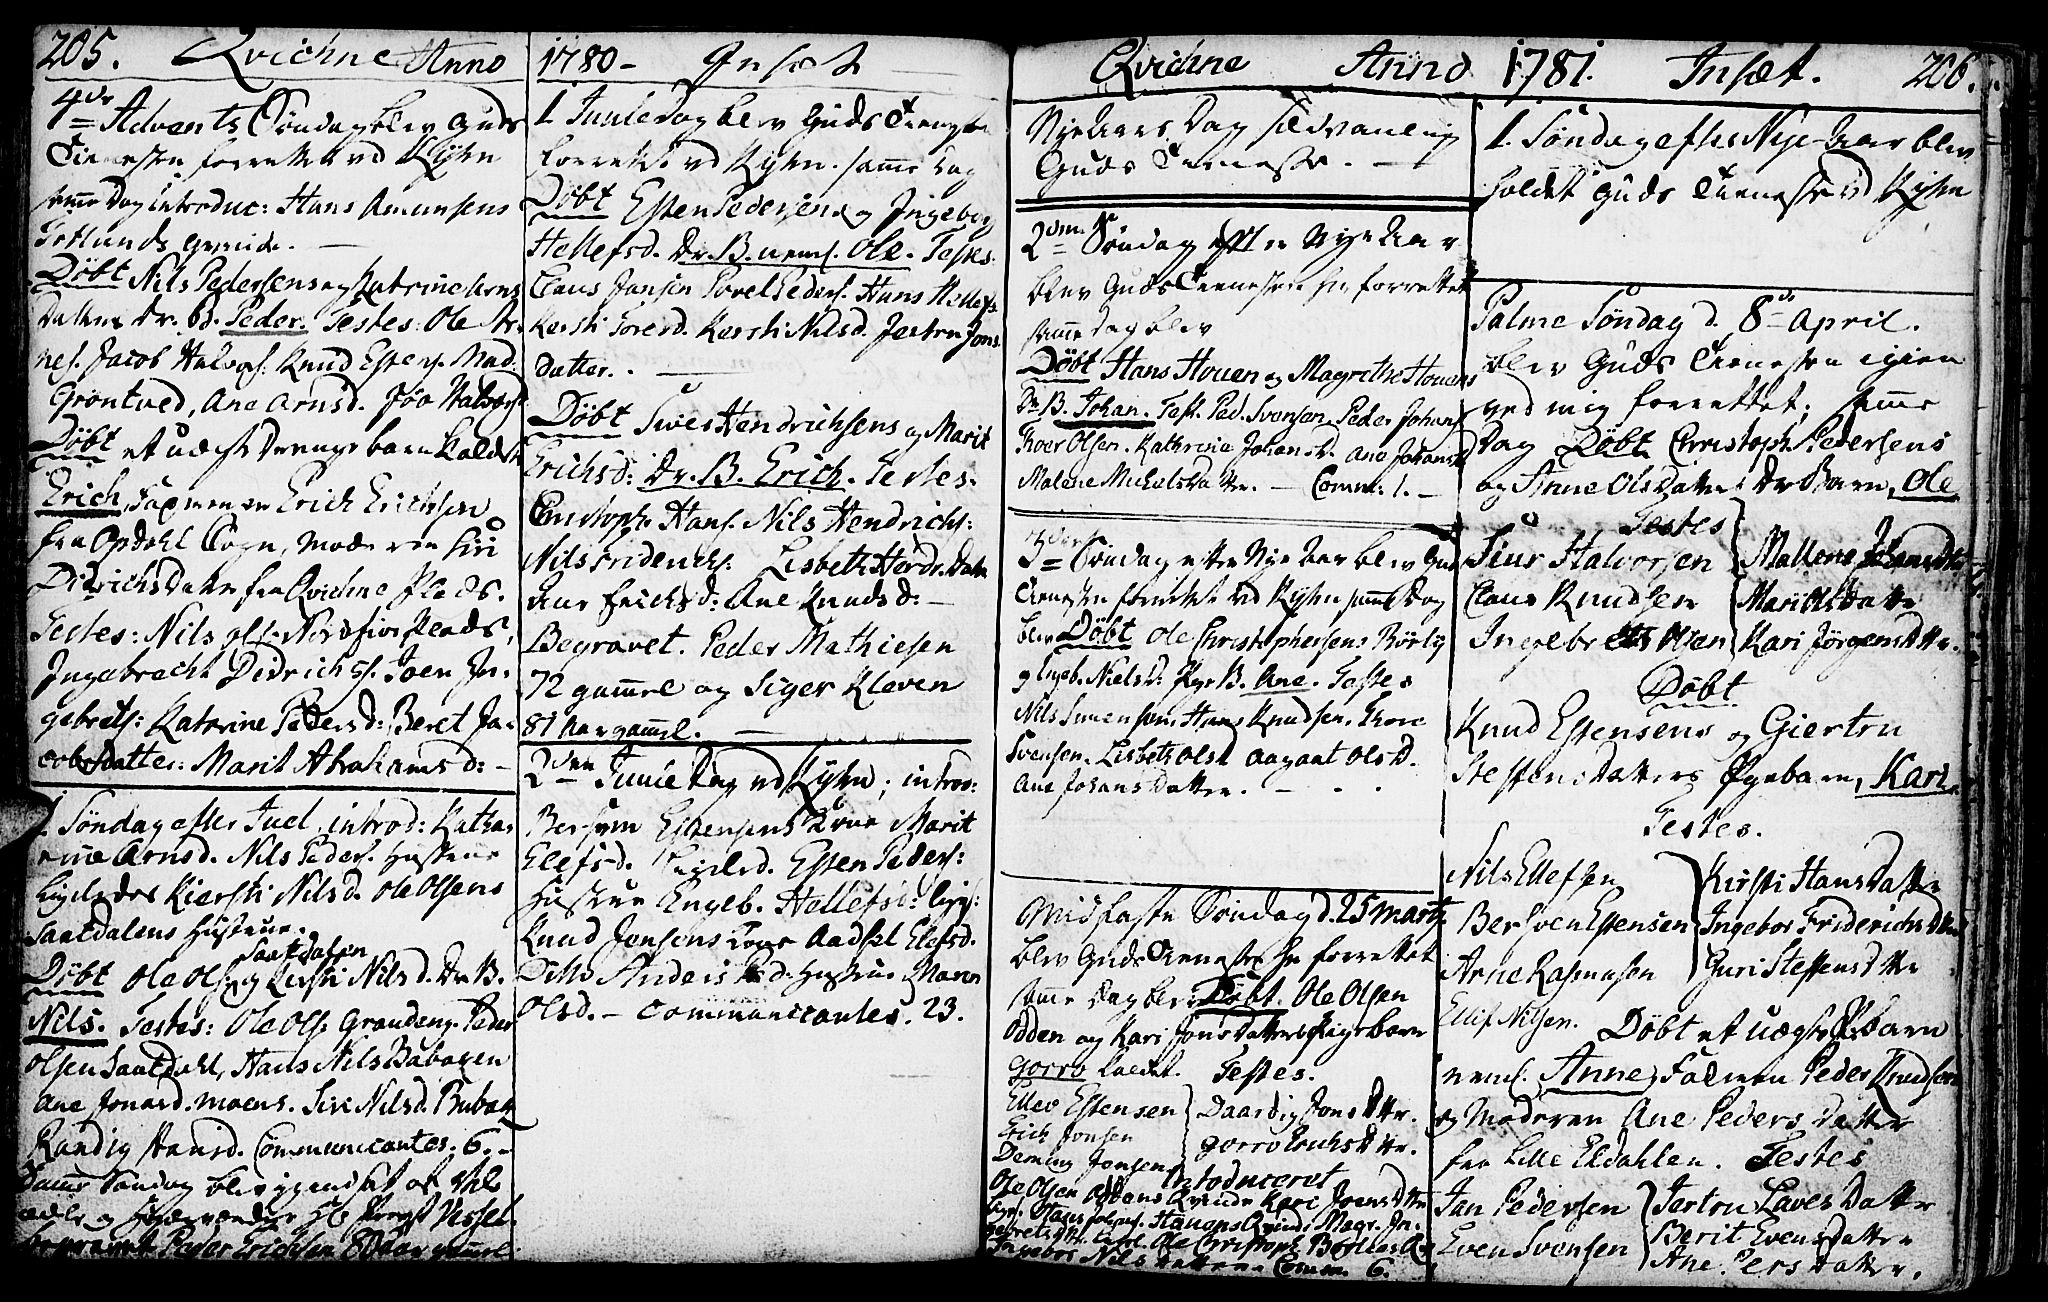 205. Qvichne Anno
4de Advents Søndag blev Guds
Tienesten forrettet ved Kyhn
samme Dag introduc: Hans Amunsens
Døbt Nils Pedersens og Katrine Arns
Datters Dr. B. Peder. Testes: Ole Ar-
nes. Jacob Halvors. Knud Estens. Mad:
Grøntved, Ane Arnsd. Halvors
Døbt et uægte Drenge barn kaldet
Erich, Faderen er Erich Erichsen
fra Opdahl Sogn, Moderen Siri
Didrichs Datter fra Qvichne Plads.
Testes: Nils
Ingebrecht Didrichs. Joen In-
gebrets: Katarine Peders d: Beret Ja-
cobsdatter: Marit Abrahams d: -
1. Søndag efter Juel, introd: Katha-
rine Arnsd. Nils Peders. Hustrue
Ligeledes Kiersti Nilsd. Ole Olsens
Saatdalens Hustrue.
Saatdalen
Døbt Ole Ols. og Kersti Nilsd. Dr. B.
Nils. Testes: Ole Ols. Grauden. Peder
Olsen Saatdahl, Hans Nils Bubaken
Ane Jonasd. moens. Siri Nilsd. Bubak
Randig Hansd. Communicantes. 6. -
Samme Søndag blev
Begravet Peder Erichsen 80 aar gammel
1780 - Insæt
1. Juule Dag blev Guds Tieneste
forrettet ved Kyhn. samme Dag
Døbt Esten Pedersens og Ingebor
Hellefsd. Dr. B. nemf. Ole. Testes.
Claus Jansen Povel Peders. Hans Hellefs.
Kersti Torerd. Kersti Nilsd. Jertru Jons
Datter.
Døbt Siver Hendrichsens og Marit
Erichsd: Dr. B. Erich. Testes:
Christoph. Hans. Nils Hendrichs:
Nils Fridrichs: Lisbeth Hendr. Datter
Erichsd: Ane Knudsd: -
Begravet. Peder Mathiesen
72 gammel og Siger Kleven
81 Aar gammel.
2den Juule Dag ved Kyhn; introd:
Bersven Estensens Kone Marit
Elefsd. Ligeled. Esten Peders:
Hustrue Engeb. Hellefsd: lige:
Knud Jonsens Kone Aadsel Elefsd.
Ditto Anders Hustrue Maren
Olsd. - Communicantes. 23.
Qvichne Anno 1781. Insæt. 206.
Nye Aars Dag sædvanlig
Guds Tieneste.
2den Søndag efter Nye Aar
blev Guds Tienesten her forrettet
samme Dag blev
Døbt Hans Houen og Magrethe Houens
Dr. B. Johan. Test. Ped. Svensen, Peder Johans
Thoer Olsen. Kathrina Johansd. Ane Johansd
Malene Michelsdatter. - Comm: 1. -
3die Søndag efter Nye Aar blev Guds
Tienesten forrettet ved Kyhn samme Dag
blev Døbt Ole Christophersens Børlig
og Ingeb. Nielsd: Pige B. Ane. Testes
Nils Simensøn, Hans Knudsen. Thore
Svensen. Lisbeth Olsd Aagaat Olsd.
Ane Johans Datter. -
Midfaste Søndag d. 25 Marty
blev Guds Tieneste her forrettet
samme Dag blev Døbt. Ole Olsen
Odden og Kari Jons Datters Pige barn
Gorro kaldet. Testes.
Ellev Estensen Daardig Jons Dtr.
Erich Jonsen Gorro Erichs Dtr.
Deming Jonsen
Introduceret
Ole Olsen Oddens Qvinde Kari Joens Dtr
Ole Christoph. Børlies
Ingebor Nils Datter. Comm. 6.
1. Søndag efter Nye-Aar blev
holdet Guds Tieneste ved Kyhn
Palme Søndag d. 8de April.
blev Guds Tienesten igien
ved mig forrettet; samme
Dag Døbt Christoph. Pedersens
og Anne Ols Datters Dr Barn, Ole
Testes
Siur Halvorsen Mallene Johans Dtr
Claus Knudsen Mari Olsdatter
Ingebret Olsen Kari Jørgens Dtr.
Døbt
Knud Estensens og Giertru
Steffens Datters Pigebarn, Kari
Testes.
Nils Ellefsen Kirsti Hans Datter
Bersven Estensen Ingebor Friderichs Dtr
Arne Rasmusen Guri Steffens Dtr
Ellif Nilsen. Døbt et uægte P. barn
nemf. Anne, Faderen Peder Knudsen
og Moderen Ane Peders Datter
fra Lille Eldahlen. Testes
Jan Pedersen Jertru Laves Datter
Even Svensen Berit Evens Datter
Ane Pers Datter.